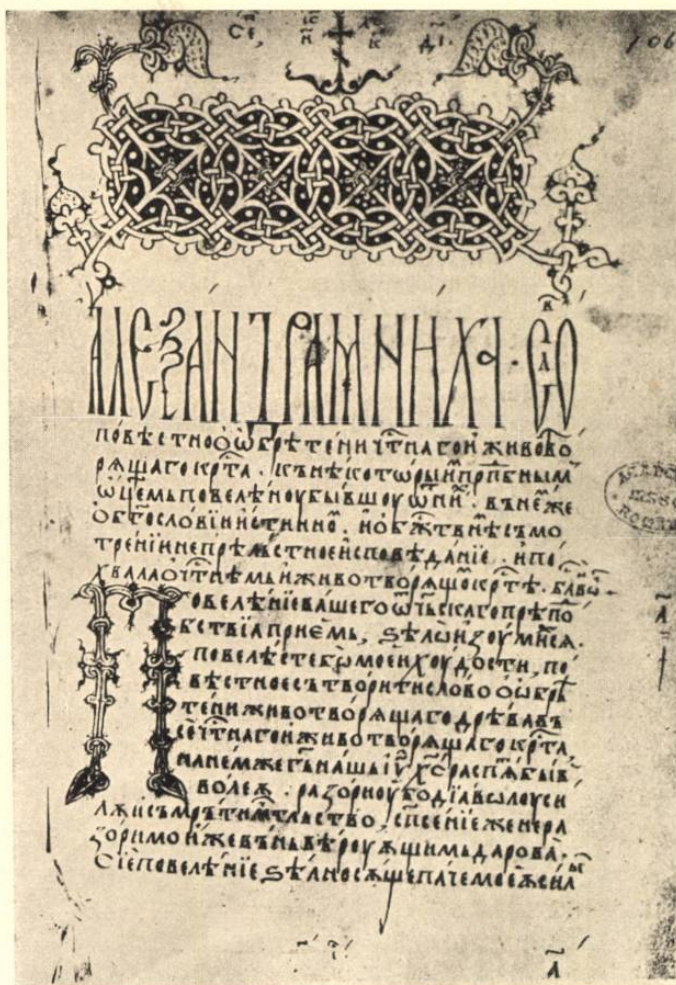 106
АЛЕѮАНДРА МНИХА · СЛО
повѣстно о ѡбрѣтени чтⷭнагѡ и животво
рѧщаго крⷭта . къ нѣкотѡрыи прпⷣбныⷨ
ѡц҃емь повелѣноу бывшоу ѡ нⷨи . въ неⷨже
о бгⷭословїи истинноⷨ . и о бжⷭтвнѣⷨ съмо
тренїи непрѣлⷭтное исповѣданїе . и по
хвала о чтⷭнѣмь и животворѧщоⷨ крⷭтѣ . бл҃вⷭѡ
Повелѣнїе вашего ѡч҃ьскаго прѣпоⷣ
бствїа прїемь , ѕѣлѡ изоумиⷯсѧ .
повелѣсте бѡ моеи хоудости , по
вѣстное сътворити слово о ѡбрѣ
тени животворѧщаго дрѣва въ
сечтⷭнаго и животворѧщаго крⷭта ,
на немже гь҃ нашь і҃у х҃с распѧⷮ бывь
волеѧ . разорноу бо дїаволоу си
лѫ и съмрътиⷨ мⷱтльство , сп҃сенїе же нера
зоримо иже въ нь вѣроуѧщимь дарова .
Сїе повелѣнїе ѕѣлно сѧще паче моеѧ силы